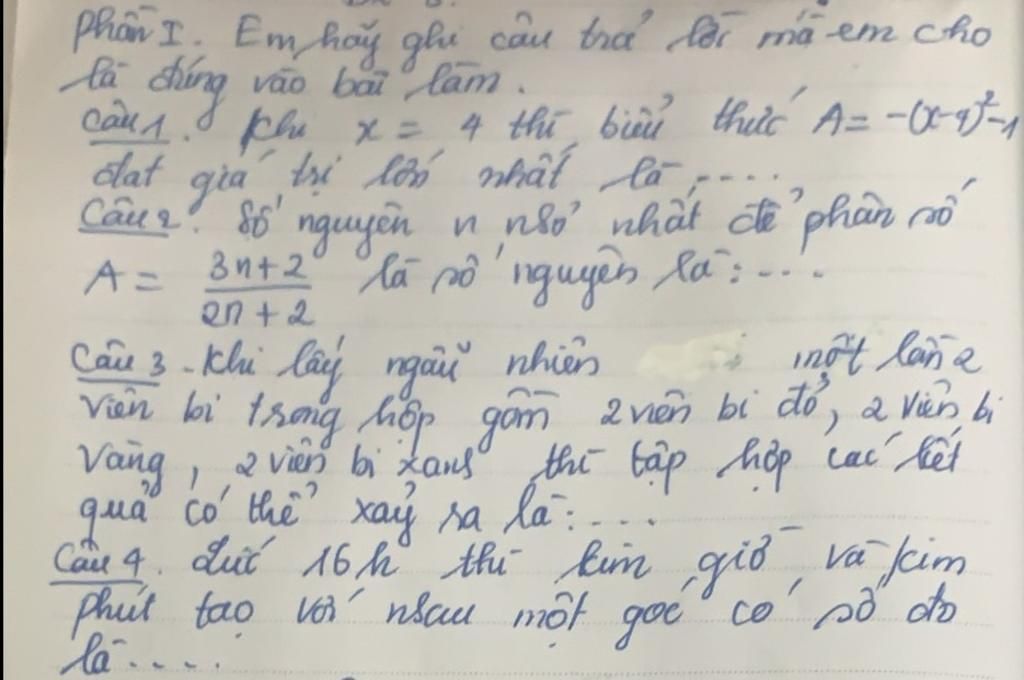 Phần I. Em hãy ghi câu trả lời mà em cho
là đúng vào bài làm.
Câu 1. Khi x = 4 thì biểu thức A = -(x-4)²-1
đạt giá trị lớn nhất là ....
Câu 2. Số nguyên n nhỏ nhất để phân số
A = \frac{3n+2}{2n+2} là số nguyên là: ....
Câu 3. Khi lấy ngẫu nhiên một lần 2
viên bi trong hộp gồm 2 viên bi đỏ, 2 viên bi
vàng, 2 viên bi xanh thì tập hợp các kết
quả có thể xảy ra là: ....
Câu 4. Lúc 16h thì kim giờ và kim
phút tạo với nhau một góc có số đo
là ....